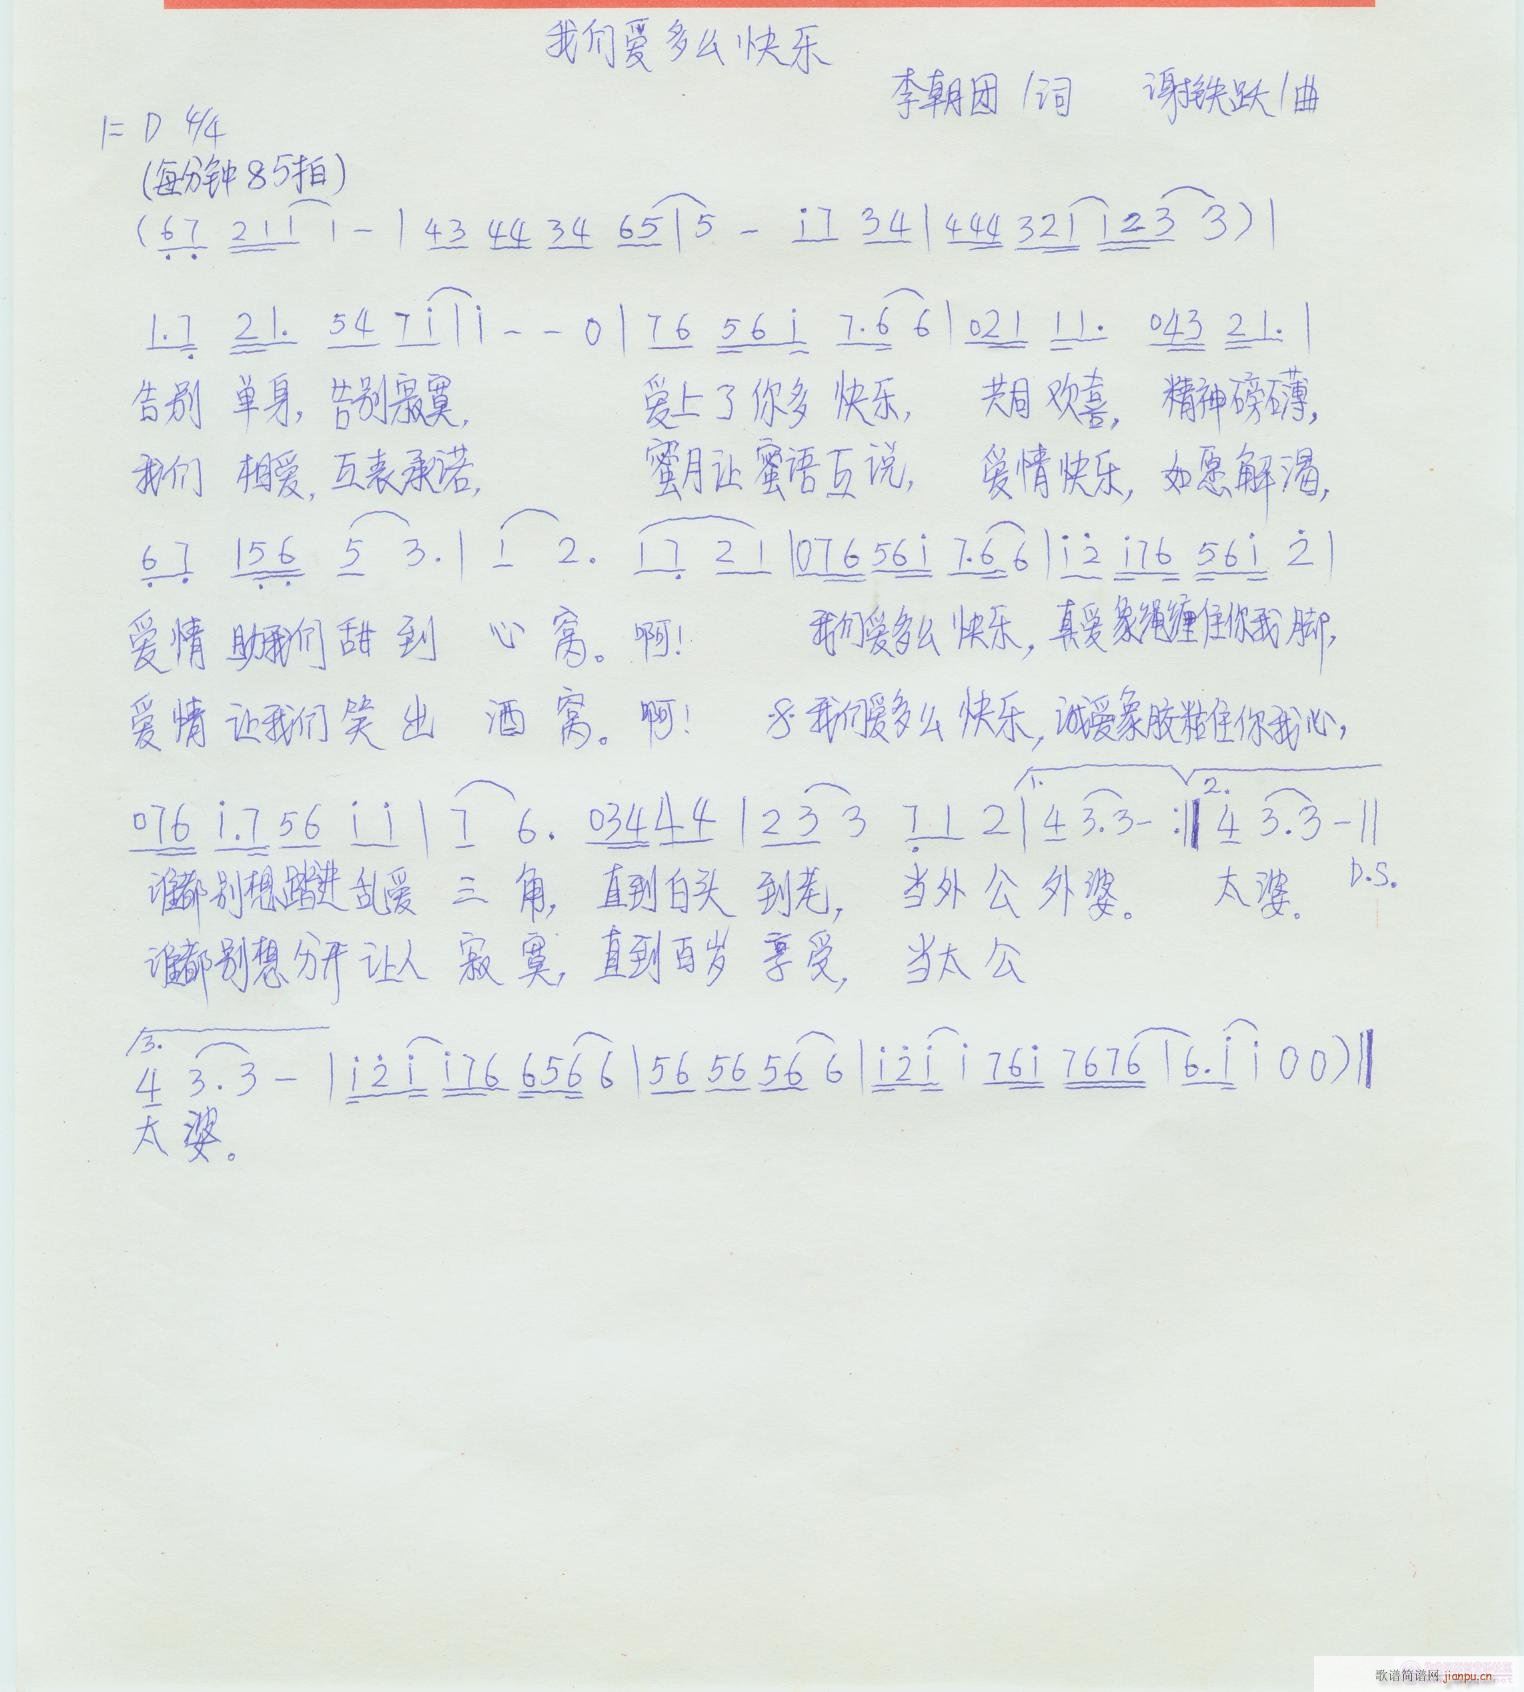 我们爱多么快乐
李朝团/词 谢铁跃/曲
1=D 4/4
(每分钟85拍)
(67 211 1-|43 44 34 65|5 - i7 34|444 321 123 3)|
1.7 21. 54 7i|i--0|76 56i 7.66|021 11. 043 21.|
告别 单身, 告别寂寞, 爱上了你多快乐, 共同欢喜, 精神磅礴,
我们 相爱, 互表承诺, 蜜月让蜜语互说, 爱情快乐, 如愿解渴,
67 156 5 3.|1 2. 17 21|076 56i 7.66|i2 i76 56i 2|
爱情 助我们甜到 心窝。啊! 我们爱多么快乐, 真爱象绳缠住你我脚,
爱情 让我们笑出 酒窝。啊! 我们爱多么快乐, 诚爱象胶粘住你我心,
076 i.7 56 ii|7 6. 034 44|23 3 71 2|1. 4 3.3-:‖2. 4 3.3-‖
谁都别想踏进乱爱 三角, 直到白头 到老, 当外公外婆。 太婆。 D.S.
谁都别想分开让人 寂寞, 直到百岁 享受, 当太公
3.
4 3.3-|i2i i76 6566|56 56 56 6|i2i i 76i 7676|6.i i 0 0)‖
太婆。
歌谱简谱网 jianpu.cn